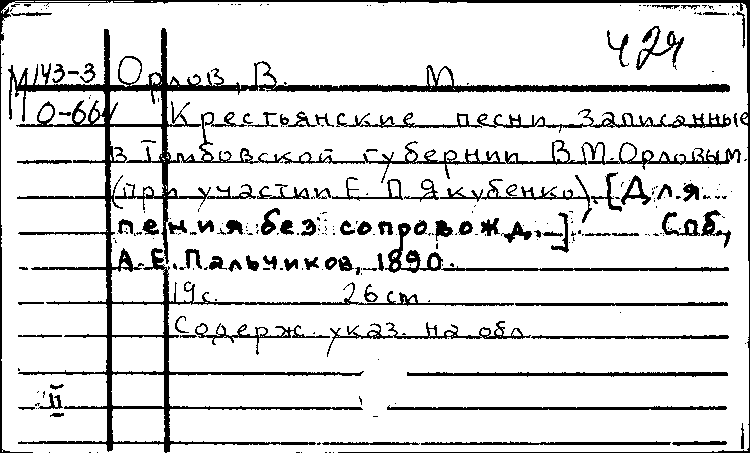 424
М 143-3 Орлов, В. М.
О-664 Крестьянские песни, записанные
в Тамбовской губернии В.М.Орловым
(при участии Е. П. Якубенко). [Для
пения без сопровожд.] Спб.,
А.Е.Пальчиков, 1890.
19с. 26 cm.
Содерж. указ. на обл
II